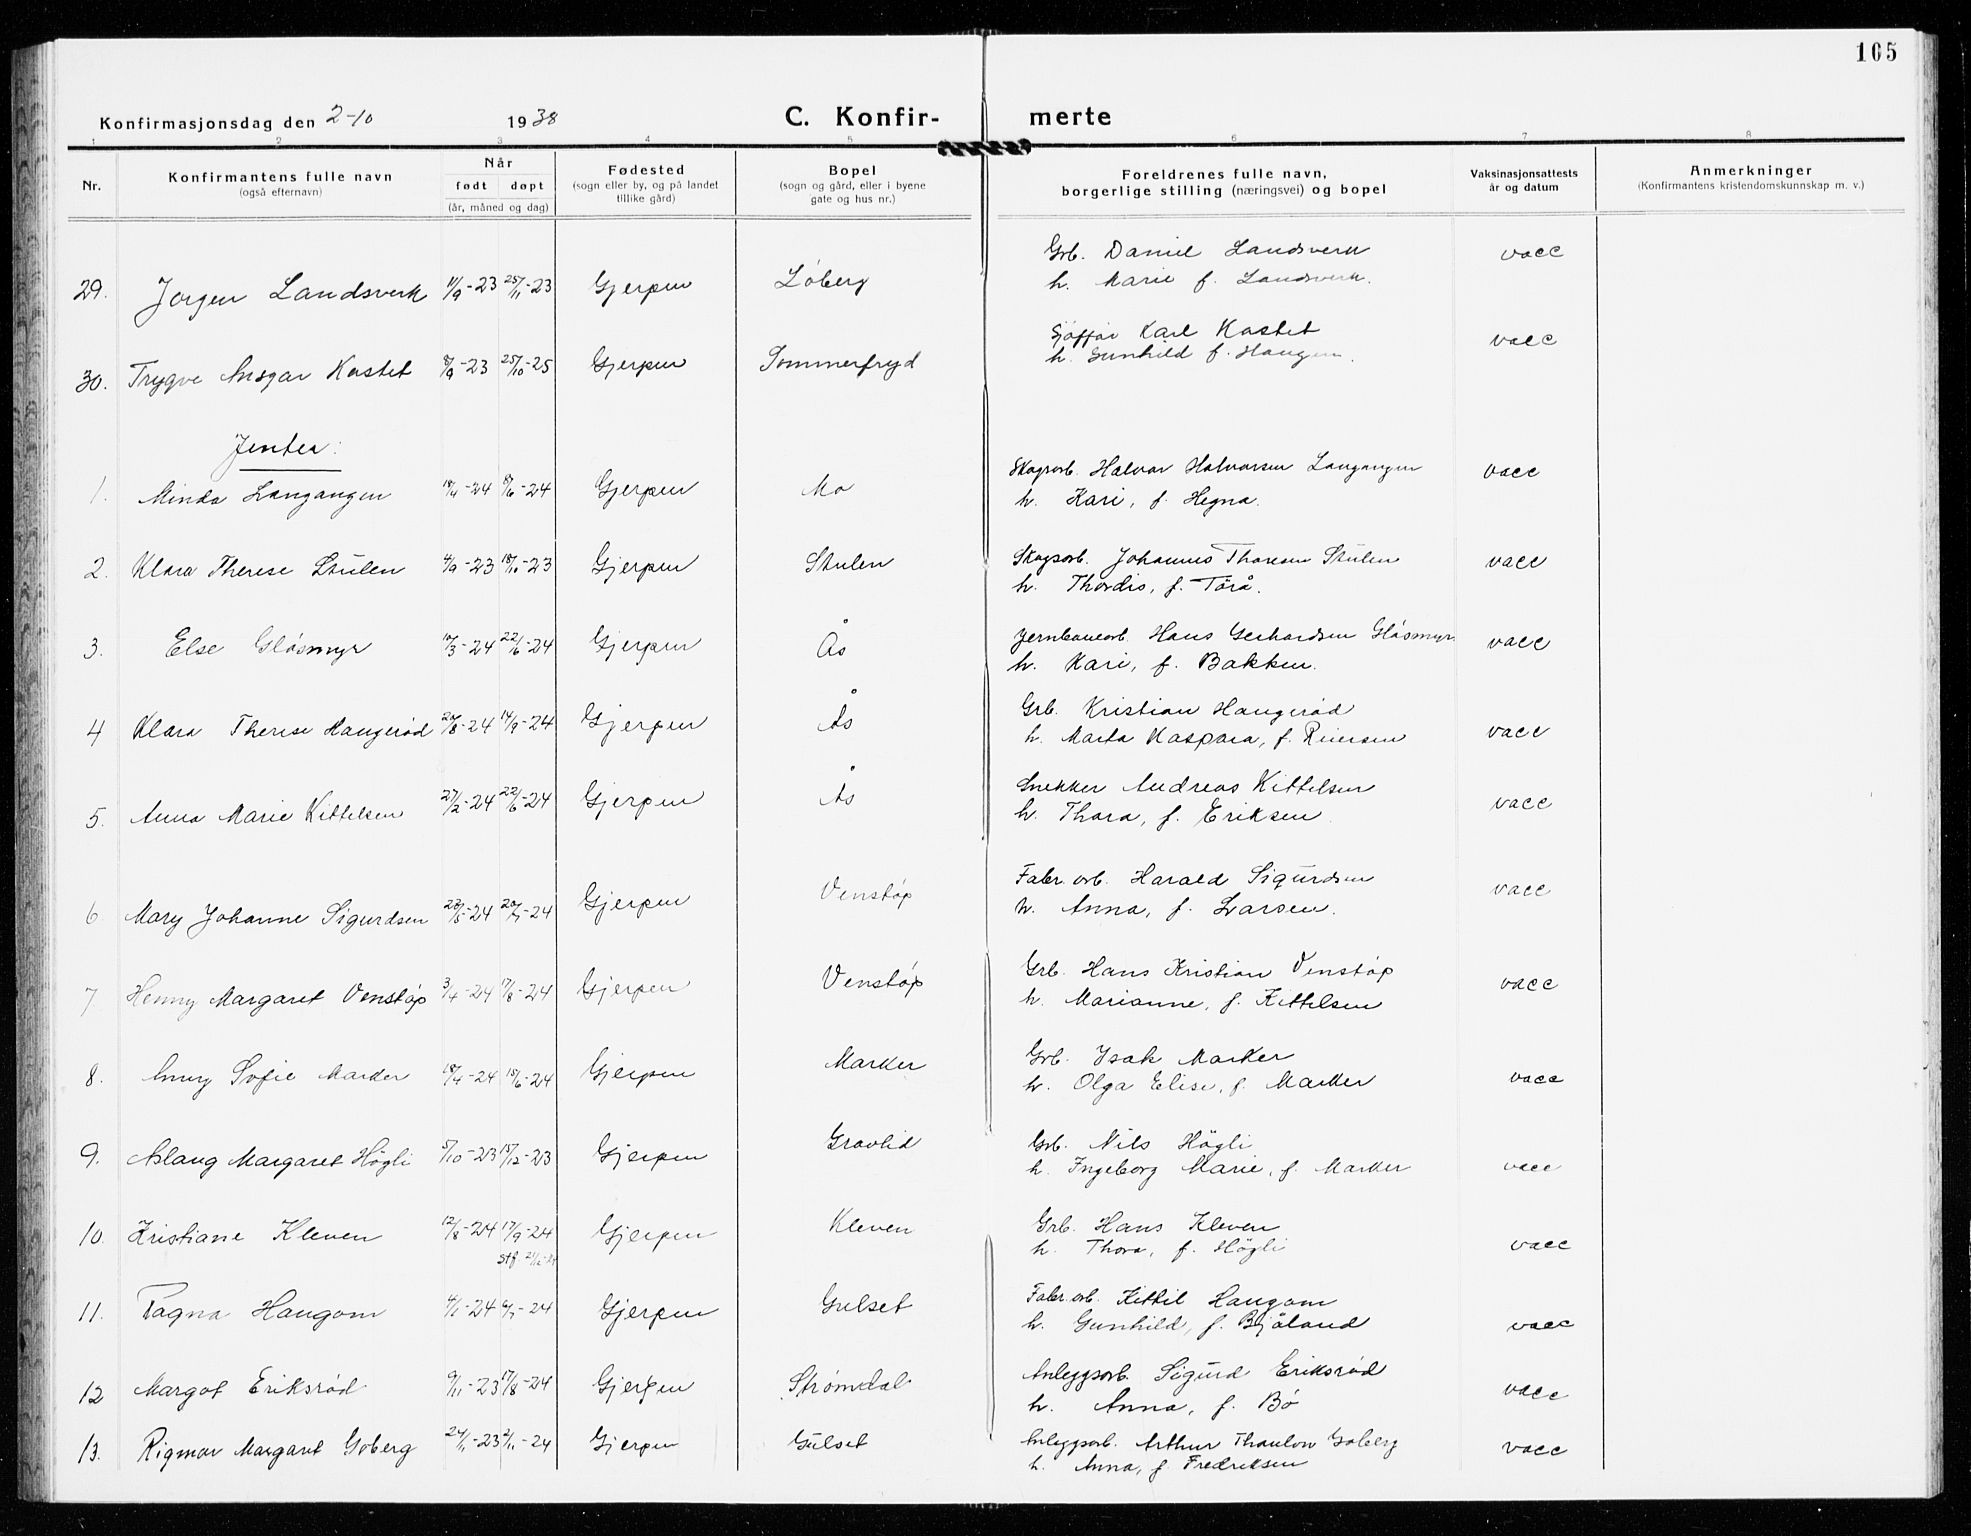 105
Konfirmasjonsdag den 2-10 1938 C. Konfir- merte
1 2 3 4 5 6 7 8
Nr. Konfirmantens fulle navn (også efternavn) Når født døpt (år, måned og dag) Fødested (sogn eller by, og på landet tillike gård) Bopel (sogn og gård, eller i byene gate og hus nr.) Foreldrenes fulle navn, borgerlige stilling (næringsvei) og bopel Vaksinasjonsattests år og datum Anmerkninger (Konfirmantens kristendomskunnskap m. v.)
29. Jørgen Landsverk 11/9-23 25/11-23 Gjerpen Løberg Grb. Daniel Landsverk vacc
h. Marie f. Landsverk.
30. Trygve Ansgar Kastet 8/9-23 25/10-25 Gjerpen Sommerfryd Karl Kastet vacc
h. Gunhild f. Haugen.
Jenter:
1. Minda Langangen 18/4-24 8/6-24 Gjerpen Mo Skogsarb. Halvor Halvorsen Langangen vacc
h. Kari, f. Hegna.
2. Klara Therese Stulen 4/9-23 18/10-23 Gjerpen Stulen Skogsarb. Johannes Thoresen Stulen vacc
h. Thordis, f. Törå.
3. Else Glåsmyr 10/3-24 22/6-24 Gjerpen Ås Jernbanearb. Hans Gerhardsen Glåsmyr vacc
h. Kari, f. Bakken.
4 Klara Therese Haugerød 20/8-24 14/9-24 Gjerpen Ås Grb. Kristian Haugerød
h. Marta Kaspara, f. Reiersen vacc
5. Anna Marie Kittelsen 27/2-24 22/6-24 Gjerpen Ås Snekker Andreas Kittelsen
h. Thora, f. Eriksen vacc
6 Mary Johanne Sigurdsen 24 24 Gjerpen Venstøp Fabr. arb. Harald Sigurdsen vacc
h. Anna, f. Larsen.
7. Henny Margaret Venstøp 3/4-24 17/8-24 Gjerpen Venstøp Grb. Hans Kristian Venstøp vacc
h. Marianne, f. Kittelsen
8. Anny Sofie Marker 18/4-24 15/6-24 Gjerpen Marker Grb. Isak Marker
h. Olga Elise, f. Marker vacc
9. Aslaug Margaret Högli 5/10-23 15/12-23 Gjerpen Gravlid Grb. Nils Högli
h. Ingeborg Marie, f. Marker vacc
10. Kristiane Kleven 12/8-24 17/9-24 Gjerpen Kleven Grb. Hans Kleven
stf. h. Thora, f. Högli vacc
11. Ragna Haugom 4/1-24 24 Gjerpen Gulset Fabr. arb. Kittil Haugom
h. Gunhild, f. Bjåland vacc
12 Margot Eriksrød 9/11-23 17/8-24 Gjerpen Strømdal Anleggsarb. Sigurd Eriksrød vacc
h. Anna, f. Bø
13. Rigmor Margaret Goberg 24/11-23 2/11-24 Gjerpen Gulset Anleggsarb. Arthur Thaulow Goberg vacc
h. Anna, f. Fredriksen